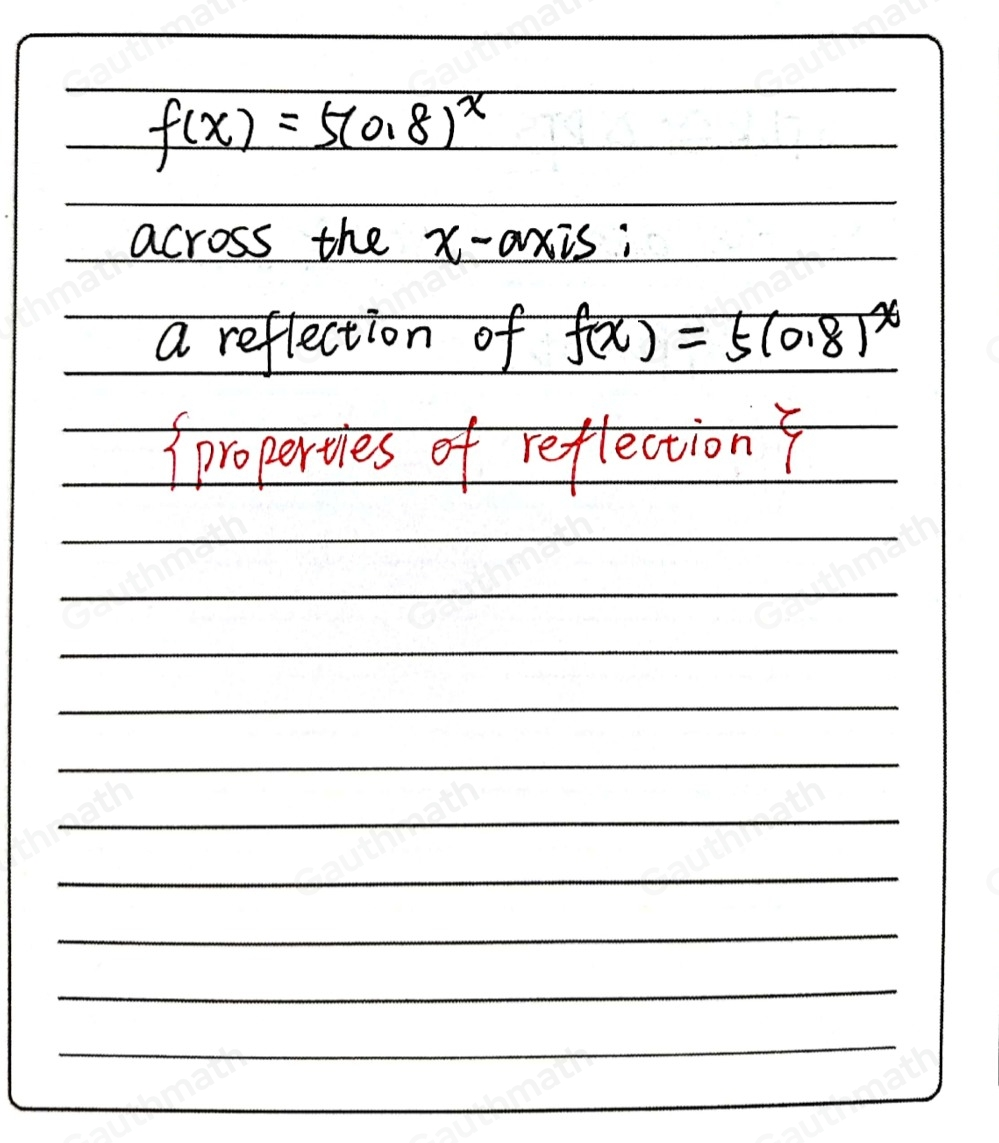 f(x) = 5(0.8)^x
across the x-axis:
a reflection of f(x) = 5(0.8)^x
{properties of reflection}
Gauthmath